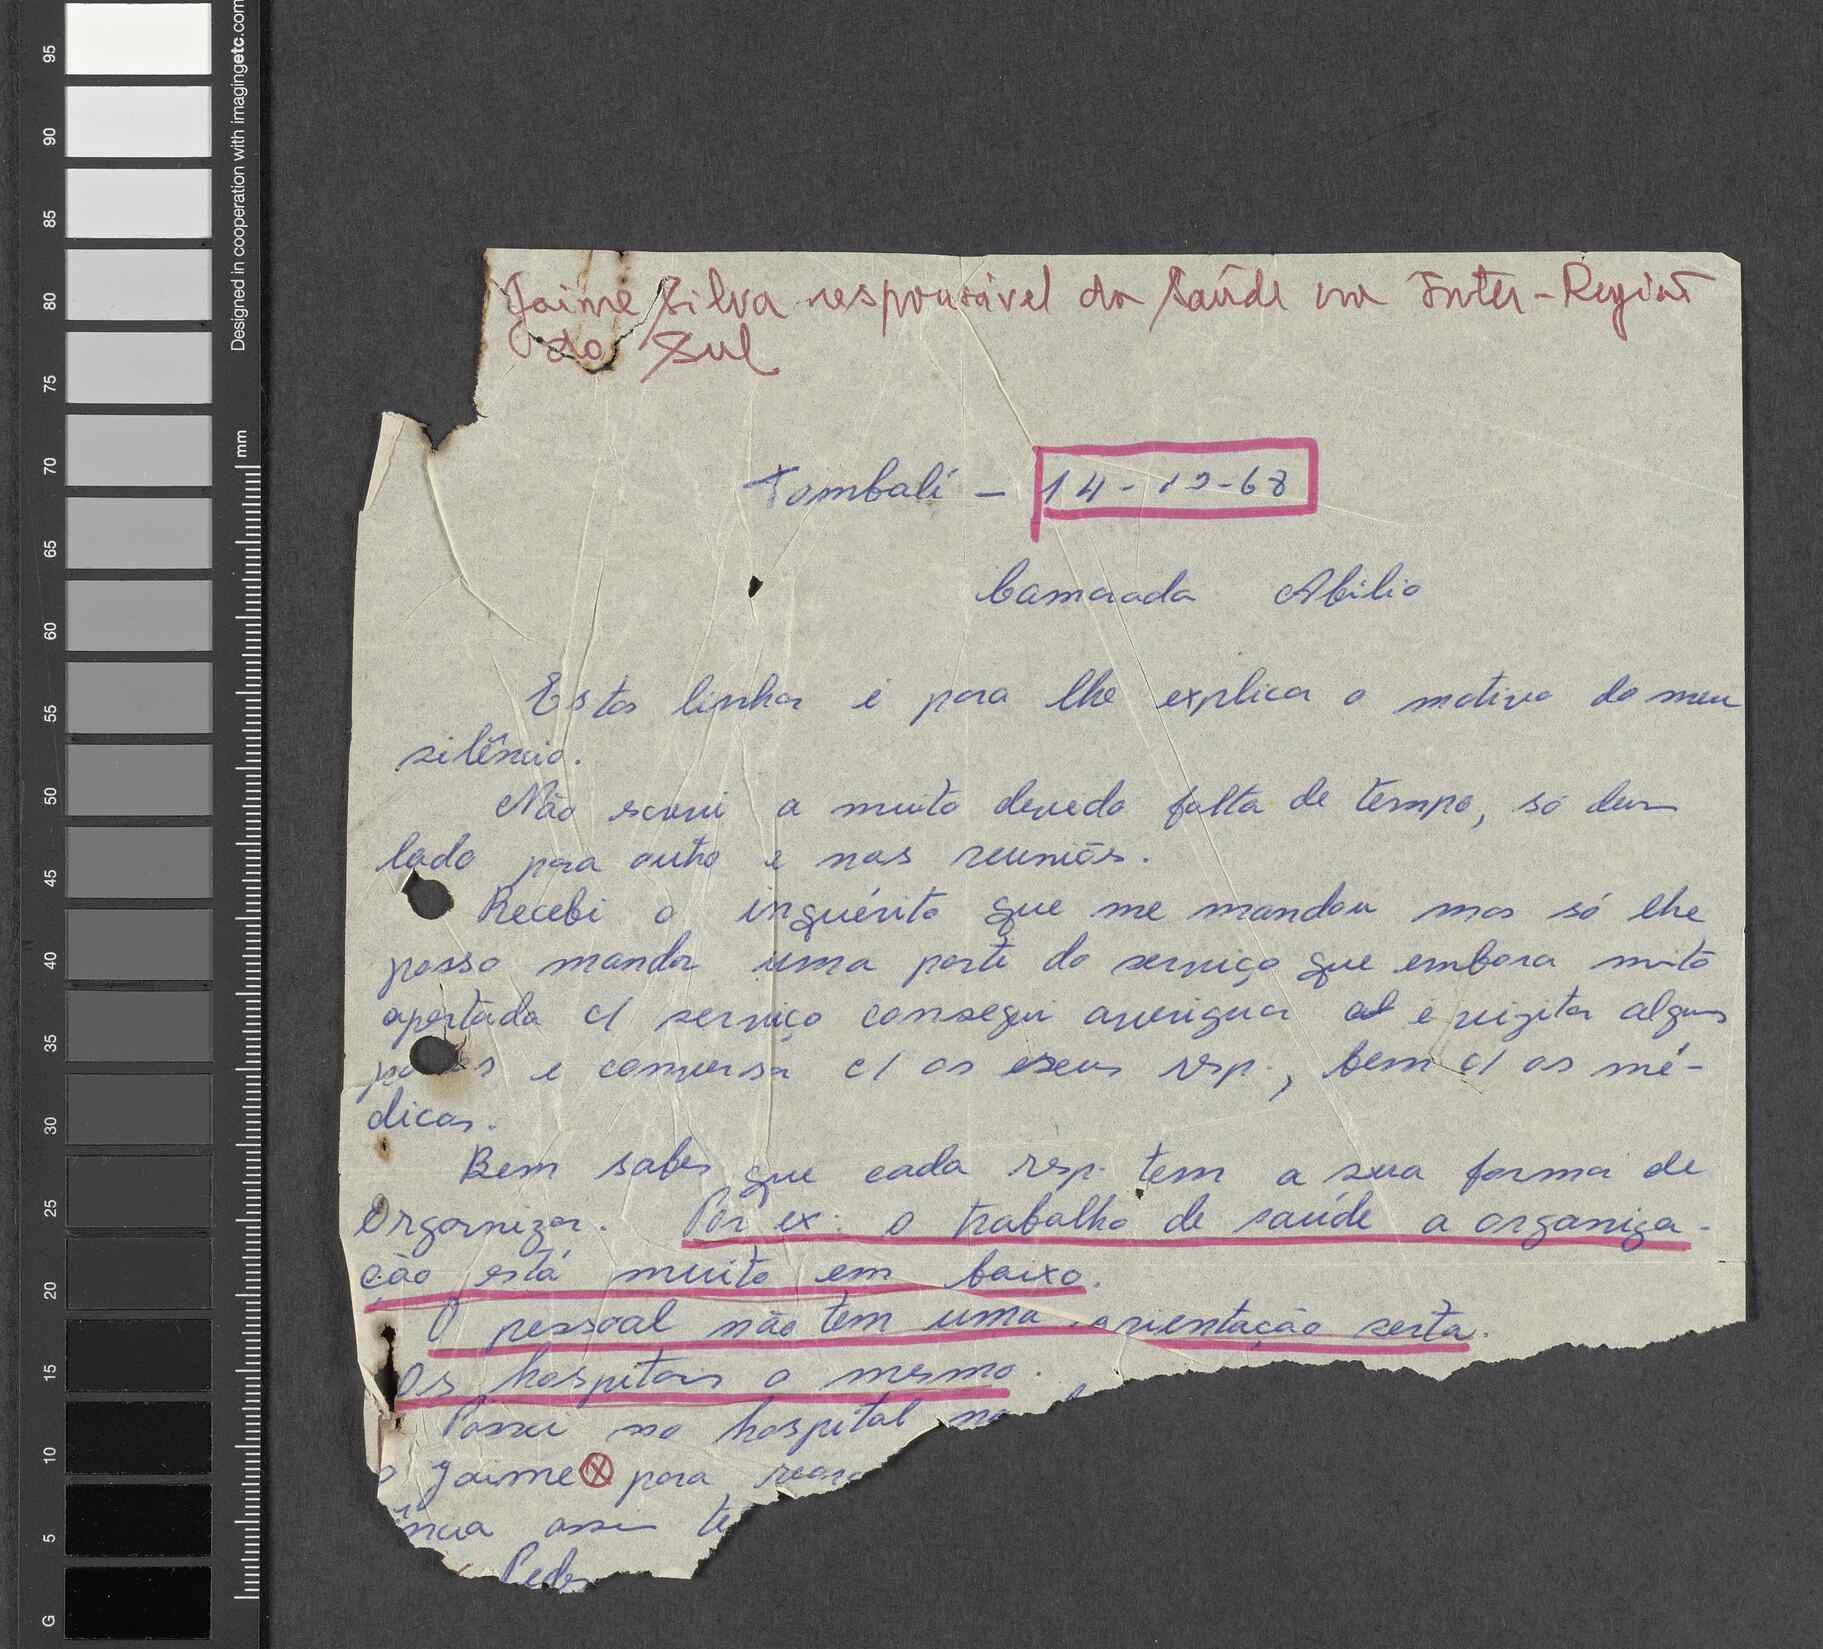 Jaime Silva responsável da Saúde na Inter-Região
do Sul
Tombali - 14-12-68
Camarada Abilio
Estas linhas é para lhe explicar o motivo do meu
silêncio.
Não screvi a muito devido falta de tempo, só dum
lado para outro e nas reuniões.
Recebi o inquérito que me mandou mas só lhe
posso mandar uma parte do serviço que embora muito
apertada c/ serviço consegui averiguar e vizitar alguns
e conversar c/ os seus resp., bem c/ os mé-
dicos.
Bem sabes que cada resp. tem a sua forma de
Organizar. Por ex: o trabalho de saúde a organiza-
ção está muito em baixo.
O pessoal não tem uma orientação serta.
Os hospitais o mesmo.
Passei no hospital
o Jaime para
assim
95
90
85
80
75
70
65
60
55
50
45
40
35
30
25
20
15
10
5
G
mm
Designed in cooperation with imagingetc.com